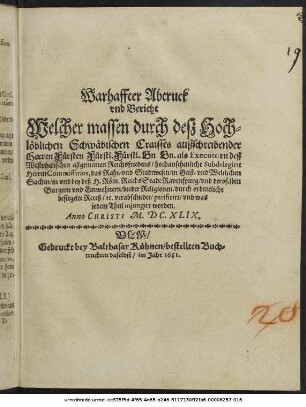 19
Warhaffter Abtruck
vnd Bericht
Welcher massen durch deß Hoch-
löblichen Schwäbischen Craises außschreibender
Herren Fürsten Fürstl. Fürstl. Gn. Gn. als Executorn deß
Westphälischen allgemainen Reichsfridens / hochansehentliche Subdelegirte
Herren Commissarios, das Raht- vnd Stadtwesen / in Geist- vnd Weltlichen
Sachen / in vnd bey deß H. Röm. Reichs Stadt Ravenspurg / vnd deroselben
Burgern vnd Einwohnern / beider Religionen / durch ordentliche
besigelte Recess / etc. verabschidet / pacificirt / vnd was
jedem Theil injungirt worden.
Anno CHRISTI M. DC. XLIX.
VLM /
Gedruckt bey Balthasar Kühnen / bestellten Buch-
truckern daselbst / im Jahr 1651.